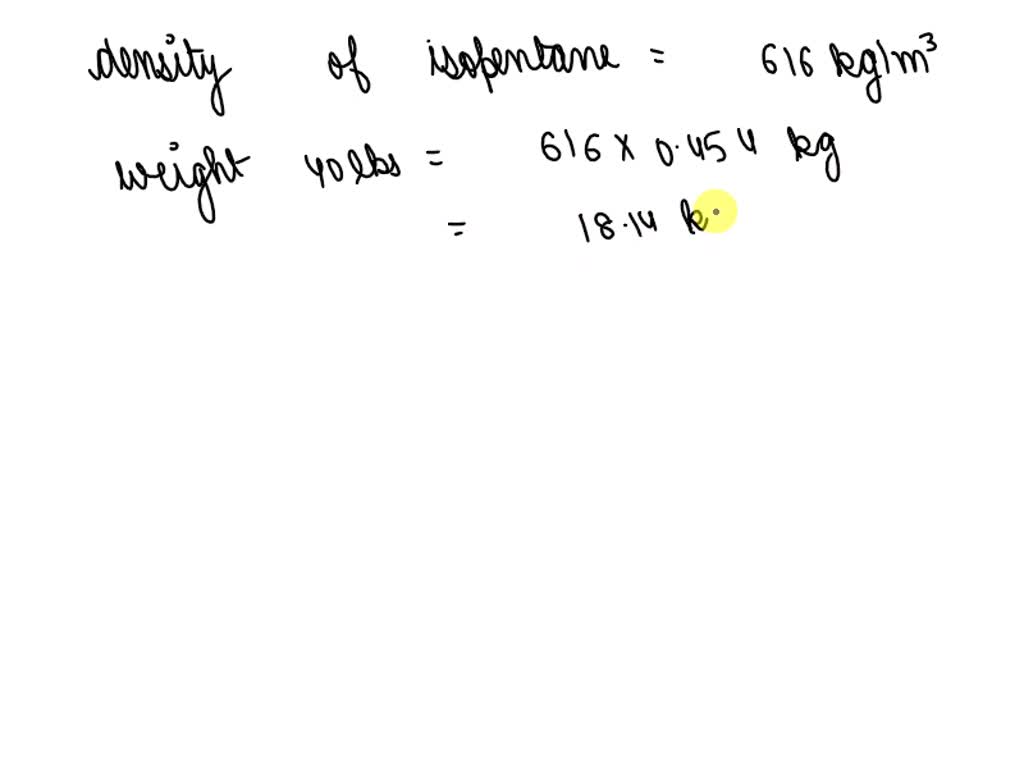 density of isopentane = 616 kg/m³
weight 40lbs = 616 x 0.454 kg
= 18.14 k